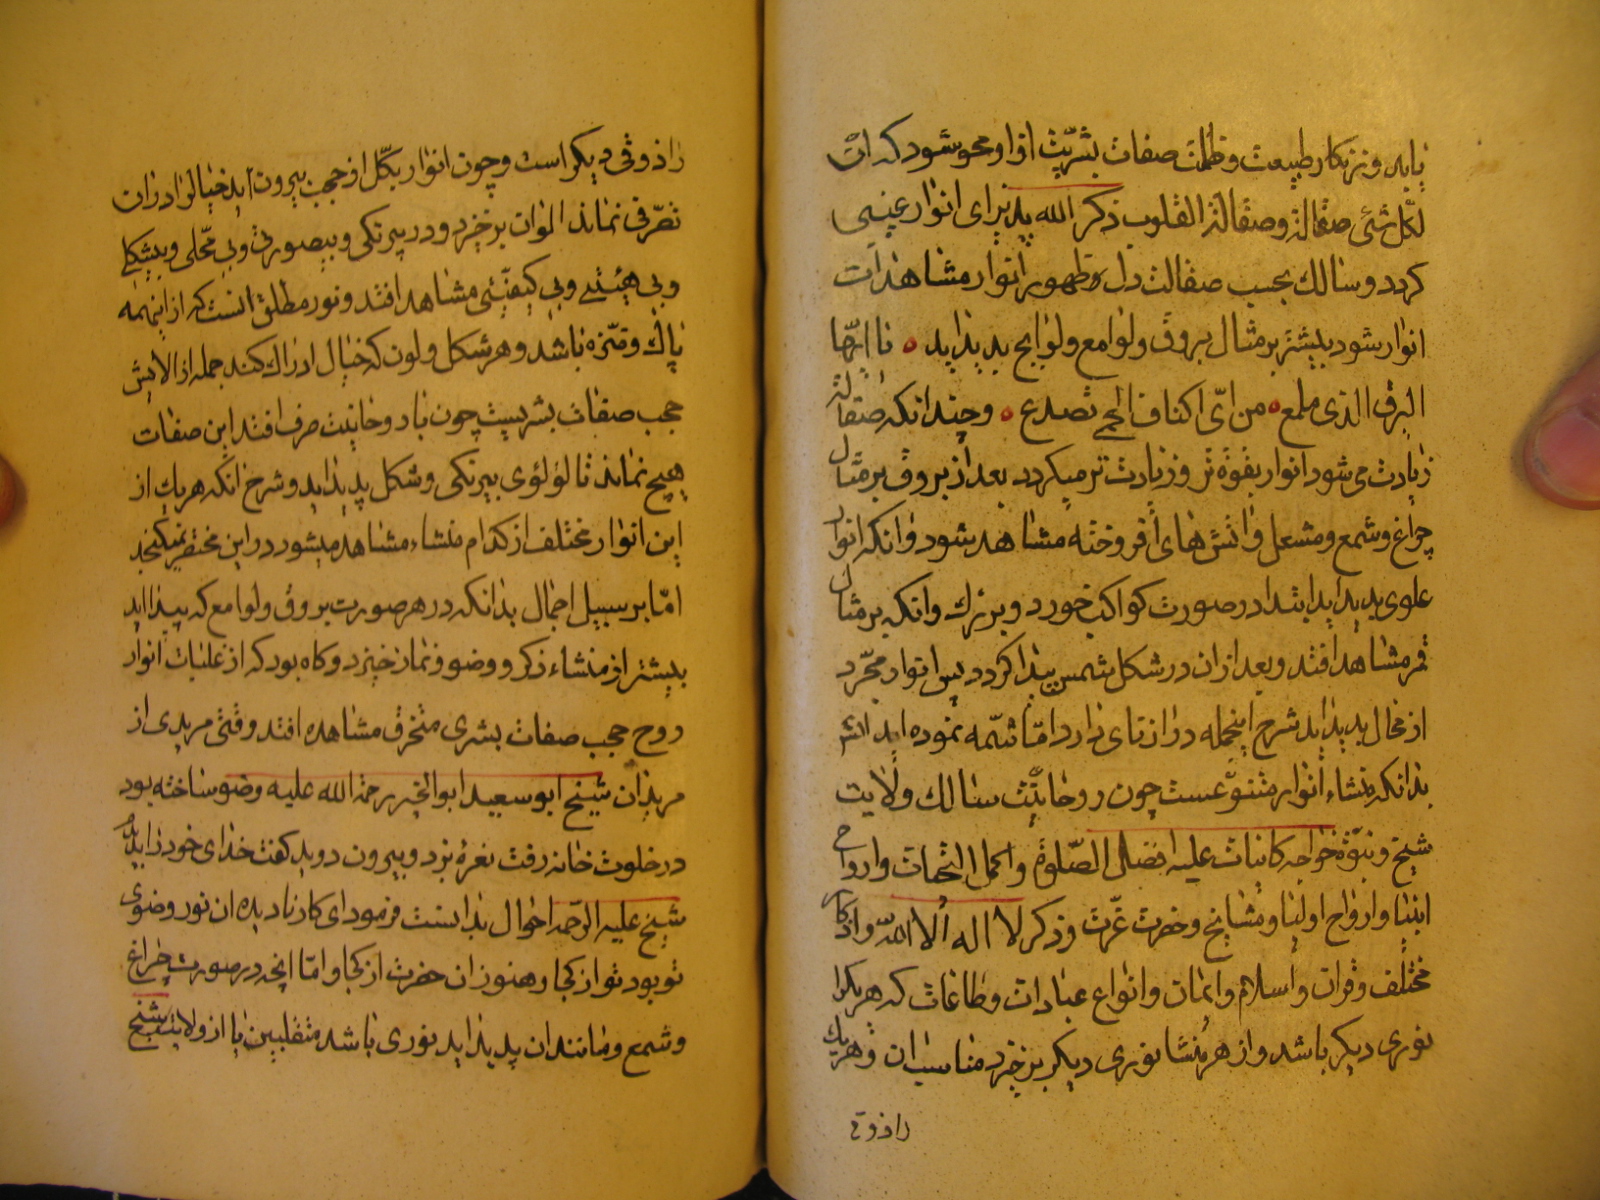 یابد و زنکار طبیعت و ظلمت صفات بشریت از او محو شود که ان
لکل شئ صقالة و صقالة القلوب ذکر الله پذیرای انوار غیبی
کردد و سالك بحسب صقالت دل و ظهور انوار مشاهد ان
انوار شود بیشتر بر مثال بروق و لوامع و لوایح پدید اید یا ایها
البرق الذی یلمع من ای اکناف الحمی تصدع و چندانکه صقالة
زیادت می شود انوار بقوة تر و زیادت تر میکردد بعد از بروق بر مثال
چراغ و شمع و مشعل و اتش های افروخته مشاهد شود و انکه انوار
علوی پدید اید ابتدا در صورت کواکب خورد و بزرك و انکه بر مثال
قمر مشاهد افتد و بعد از ان در شکل شمس پیدا کردد پس انوار مجرد
از محال پدید اید شرح اینجمله درازنای دارد اما شمه نموده اید
بدانکه منشاء انوار متنوعست چون روحانیت سالك و لایت
شیخ و نبوة خواجه کاینات علیه افضل الصلوة و اکمل التحیات و ارواح
انبیا و ارواح اولیا و مشایخ و حضرت عزت و ذکر لا اله الا الله و اذکار
مختلف و قران و اسلام و ایمان و انواع عبادات و طاعات که هر یکرا
نوری دیکر باشد و از هر منشا نوری دیکر برخیزد مناسب ان و هر یك
را ذوقی
را ذوقی دیکر است و چون انوار بکل از حجب بیرون اید خیالرا در ان
تصرفی نماند الوان برخیزد و در بیرنکی و بیصورتی و بی محلی و بیشکلی
و بی هیئتی و بی کیفیتی مشاهد افتد و نور مطلق انست که از اینهمه
پاك و منزه باشد و هر شکل و لون که خیال ادراك کند جمله از الایش
حجب صفات بشریست چون با روحانیت صرف افتد این صفات
هیچ نماند تا لؤلؤی بیرنکی و شکل پدید اید و شرح انکه هر یك از
این انوار مختلف از کدام منشاء مشاهد میشود در این مختصر نمیکنجد
اما بر سبیل اجمال بدانکه در هر صورت بروق و لوامع که پیدا اید
بیشتر از منشاء ذکر و وضو و نماز خیزد و کاه بود که از غلبات انوار
روح حجب صفات بشری متخرق مشاهده افتد وقتی مریدی از
مریدان شیخ ابو سعید ابو الخیر رحمة الله علیه وضو ساخته بود
در خلوت خانه رفت نعرۀ بزد و بیرون دوید کفت خدای خود را بدیدم
شیخ علیه الرحمه احوال بدانست فرمود ای کار نادیده ان نور وضوی
تو بود تو از کجا و هنوز ان حضرت از کجا و اما انچه در صورت چراغ
و شمع و مانند ان پدید اید نوری باشد متقلبین یا از ولایت شیخ